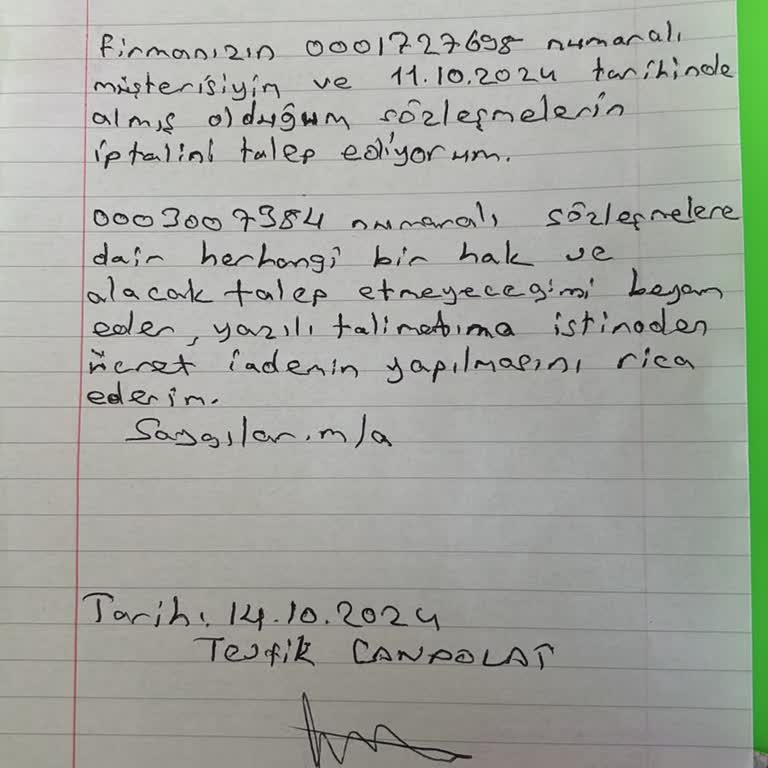 Firmanızın 0001727698 numaralı
müşterisiyim ve 11.10.2024 tarihinde
almış olduğum sözleşmelerin
iptalini talep ediyorum.
0003007384 numaralı sözleşmelere
dair herhangi bir hak ve
alacak talep etmeyecegimi beyan
eder, yazılı talimatıma istinaden
ücret iademin yapılmasını rica
ederim.
Saygılarımla
Tarih: 14.10.2024
Tevfik CANPOLAT